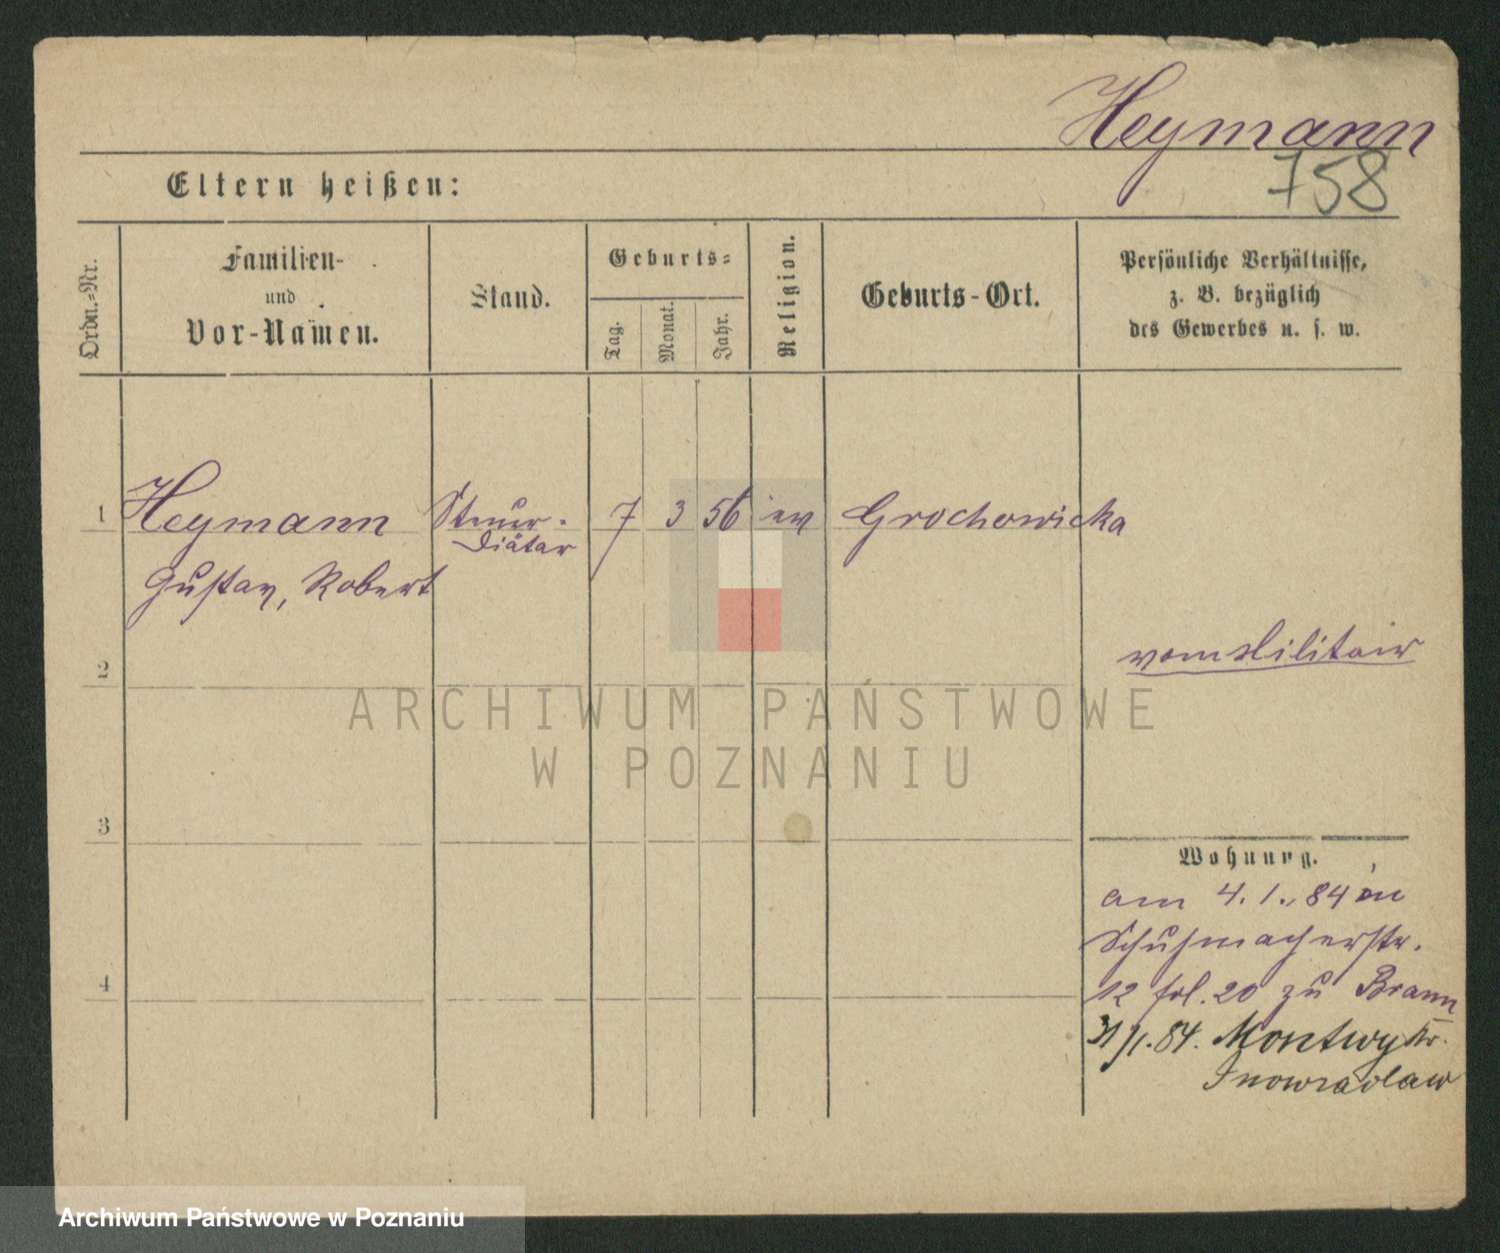 Heymann
758
Eltern heißen:
Ordn.-Nr.
Familien-
und
Vor-Namen.
Stand.
Geburts-
Tag.
Monat.
Jahr.
Religion.
Geburts-Ort.
Persönliche Verhältnisse,
z. B. bezüglich
des Gewerbes u. s. w.
1 Heymann Steuer- 7 3 56 ev Grochowicka
Diätar
Gustav, Robert
vom Militair
2
3
Wohnung.
am 4. 1. 84 in
Schuhmacherstr.
4
12 fol. 20 zu Brann
31/1. 84. Montwy Kr.
Inowraclaw
ARCHIWUM PAŃSTWOWE
W POZNANIU
Archiwum Państwowe w Poznaniu